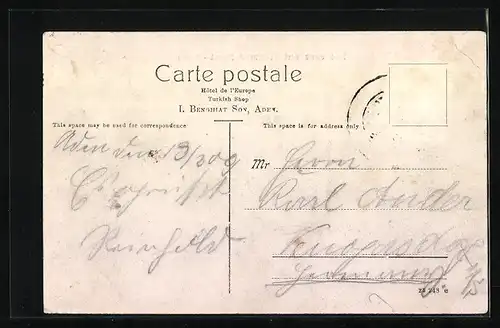 Carte postale
Hôtel de l'Europe
Turkish Shop
I. Benghiat Son, Aden.
This space may be used for correspondence
This space is for address only
Aden den 13/3 09
Es grüsst
Reinhold
Mr Herrn
Karl
Germany